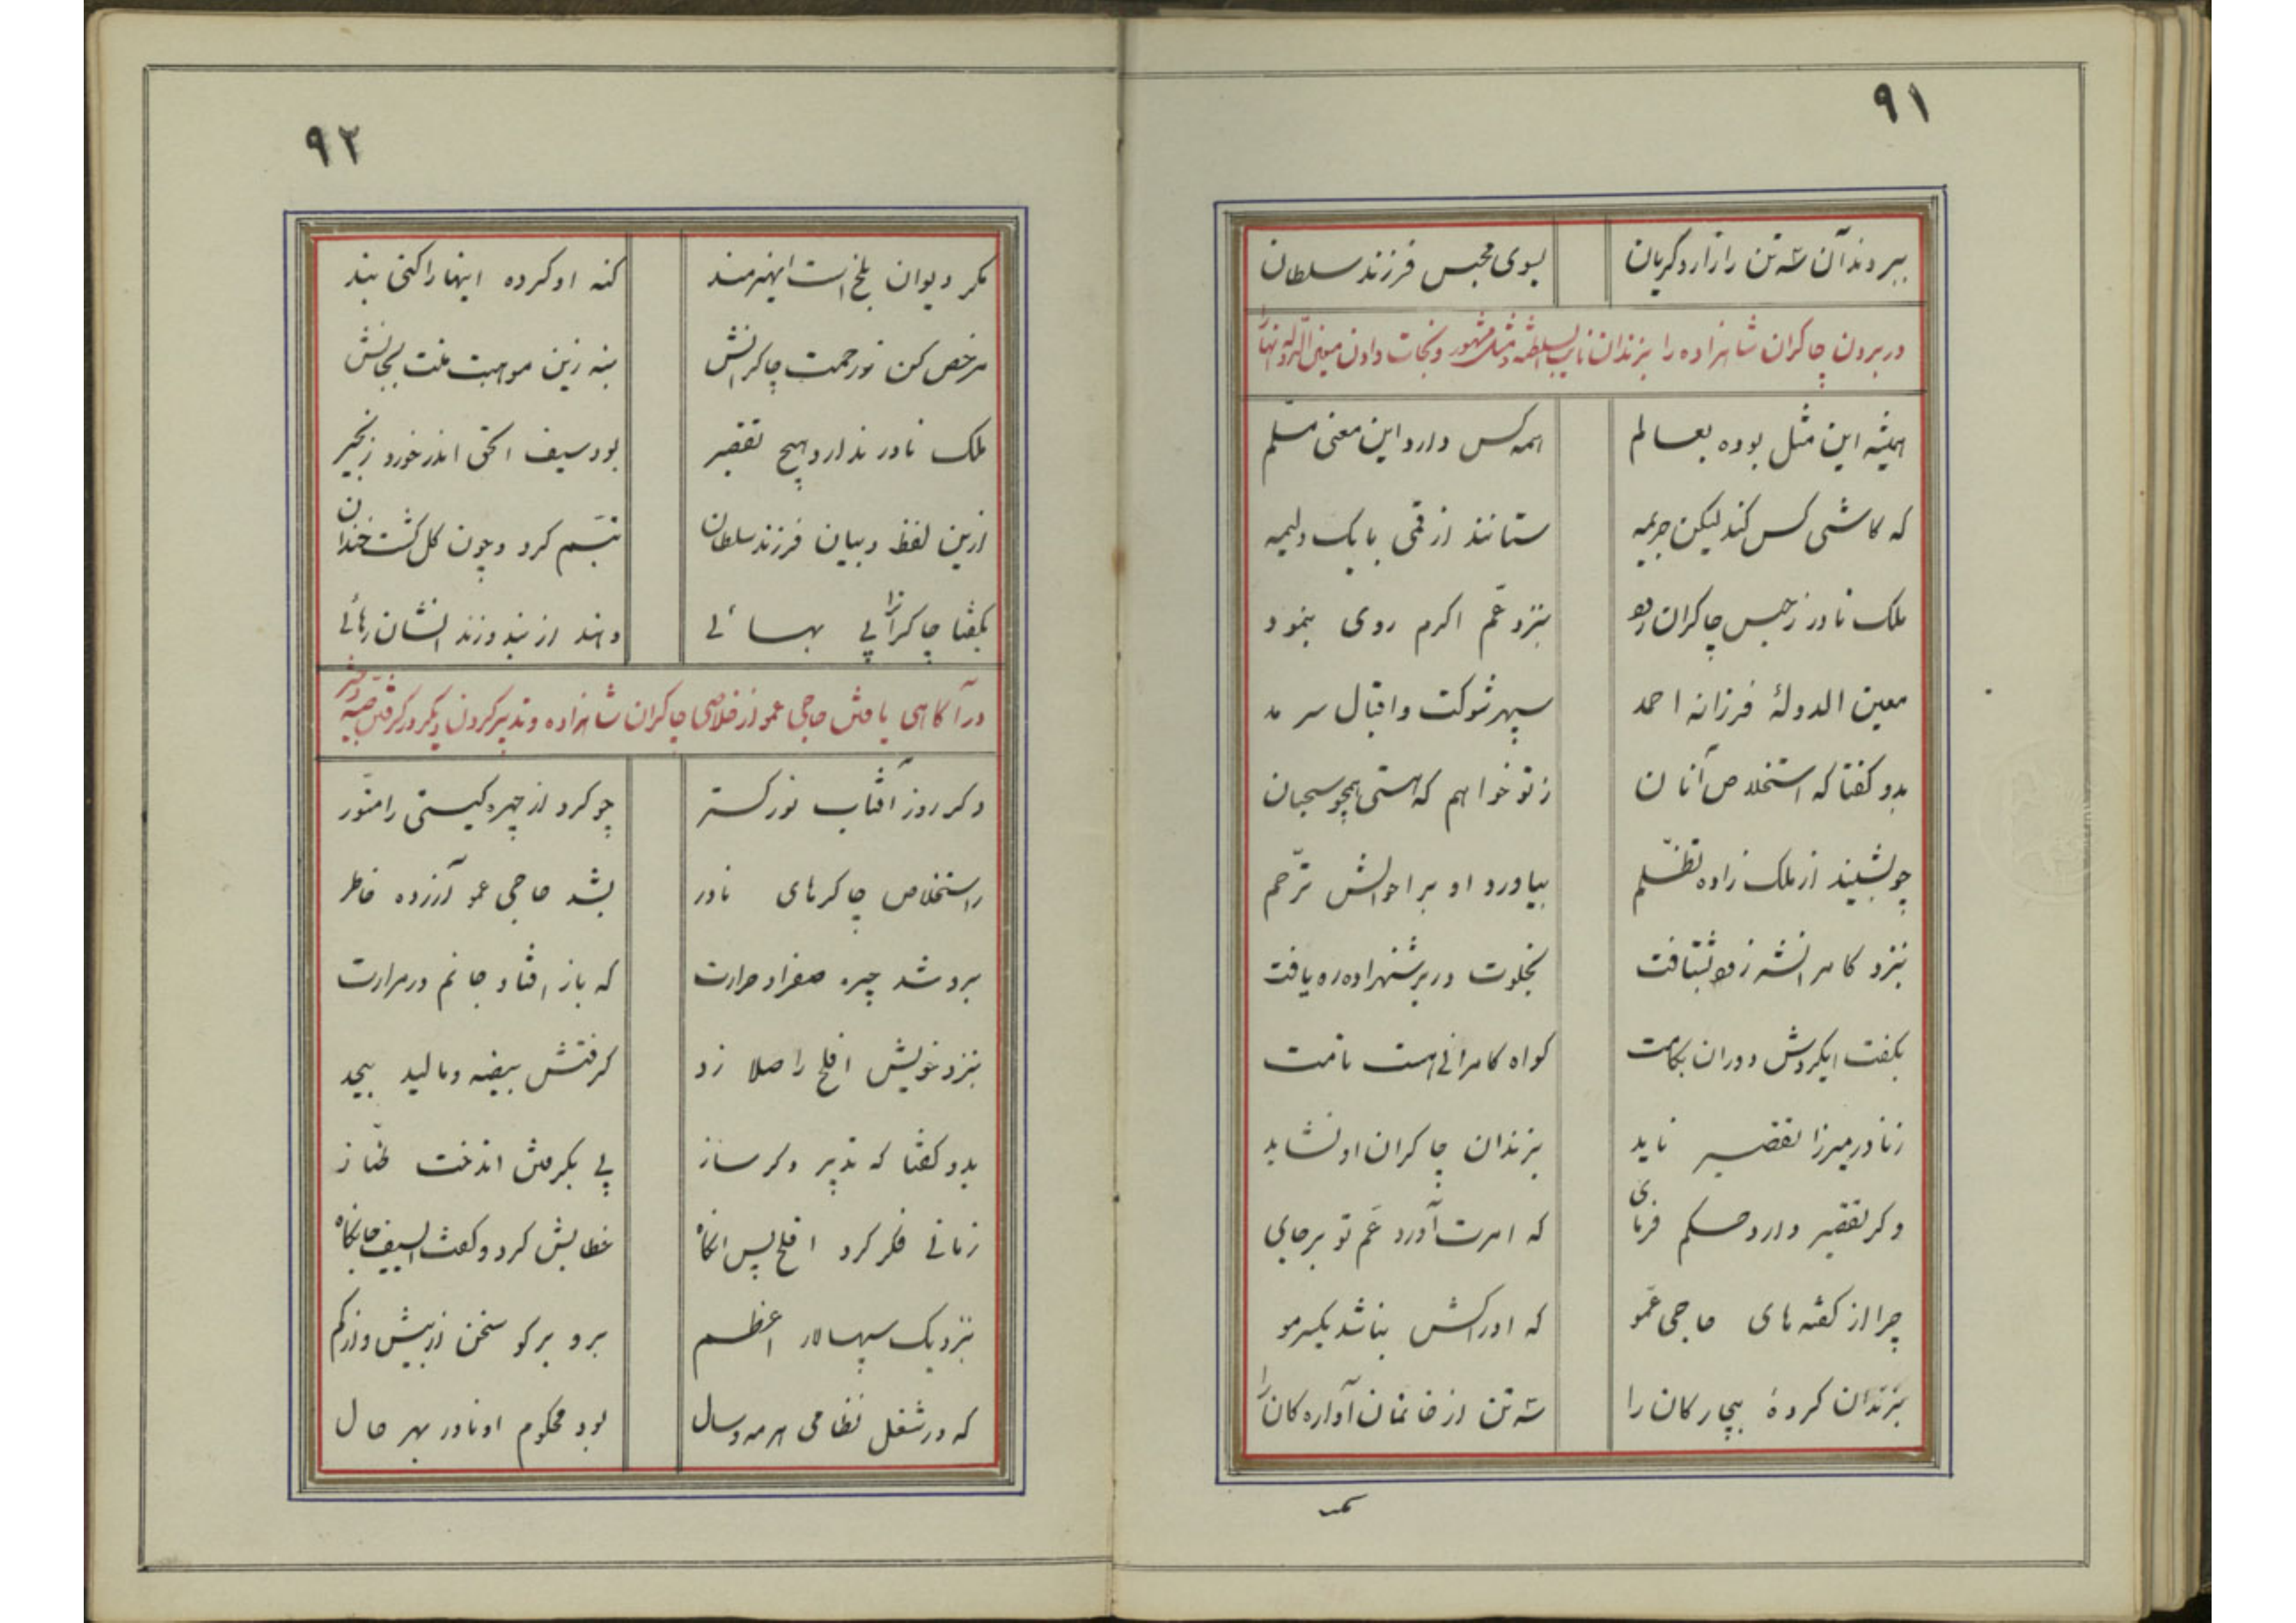 ۹۱
ببردند آن سه تن را زار و گریان بسوی محبس فرزند سلطان
در بردن چاکران شاهزاده را بزندان نایب السلطنه و مثل مشهور و نجات دادن معین الدوله آنها را
همیشه این مثل بوده بعالم همه کس دارد این معنی مسلّم
که کاشی کس کند لیکن جریمه ستانند از قمی با یک ولیمه
ملک نادر ز حبس چاکران بنزد عم اکرم روی بنمود
معین الدولهٔ فرزانه احمد سپهر شوکت و اقبال سرمد
بدو گفتا که استخلاص آنان ز تو خواهم که هستی همچو سبحان
چو بشنید از ملک زاده تظلّم بیاورد او بر احوالش ترّحم
بنزد کامرانشه زود بشتافت بخلوت در بر شهزاده ره یافت
بگفت ایگردش دوران بکامت گواه کامرانی هست نامت
ز نادر میرزا تقصیر ناید بزندان چاکران او نشاید
وگر تقصیر دارد حکم فرمای که امرت آورد عم تو برجای
چرا از گفته های حاجی عمّو که او راکش نباشد یکسر مو
بزندان کردهٔ بیچارگان را سه تن از خانمان آوارگان را
۹۲
مگر دیوان بلخ است ایهنرمند گنه او کرده اینها را کنی بند
مرخص کن ز رحمت چاکرانش بنه زین موهبت منت بجانش
ملک نادر ندارد هیچ تقصیر بود سیف الحق اندر خورد زنجیر
ازین لفظ و بیان فرزند سلطان تبسّم کرد و چون گل گشت خندان
بگفتا چاکرانرا بی بهائی دهند از بند و زندانشان رهائی
در آگاهی یافتن حاجی عمو از خلاصی چاکران شاهزاده و تدبیر کردن دیگر در گرفتن
دگر روز آفتاب نور گستر چو کرد از چهره گیتی را منوّر
ز استخلاص چاکرهای نادر بشد حاجی عمو آزرده خاطر
برو شد چیره صفرا و حرارت که باز افتاد جانم در مرارت
بنزد خویش افلح را صلا زد گرفتش بیضه و مالید بیحد
بدو گفتا که تدبیر دگر ساز پی بگرفتن اندخت طنّاز
زمانی فکر کرد افلح پس انگاه خطابش کرد و گفت السیف جانکاه
بنزدیک سپهسالار اعظم برو برگو سخن از بیش و از کم
که در شغل نظامی هر مه و سال بود محکوم او نادر بهر حال